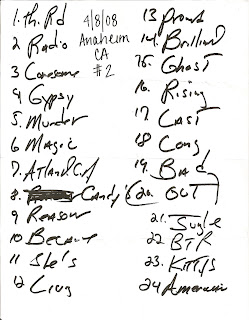 1. Th. Rd
2 Radio
3 Lonesome
4 Gypsy
5. Murder
6 Magic
7. Atlantic
8. Candy's
9 Reason
10 Because
11 She's
12 Living
4/8/08
Anaheim
CA
#2
13 Proud
14. Brillind
15. Ghost
16. Rising
17 Last
18 Long
19. Bad
20. OUT
21. Jugle
22 BTR
23. Kitty's
24 American